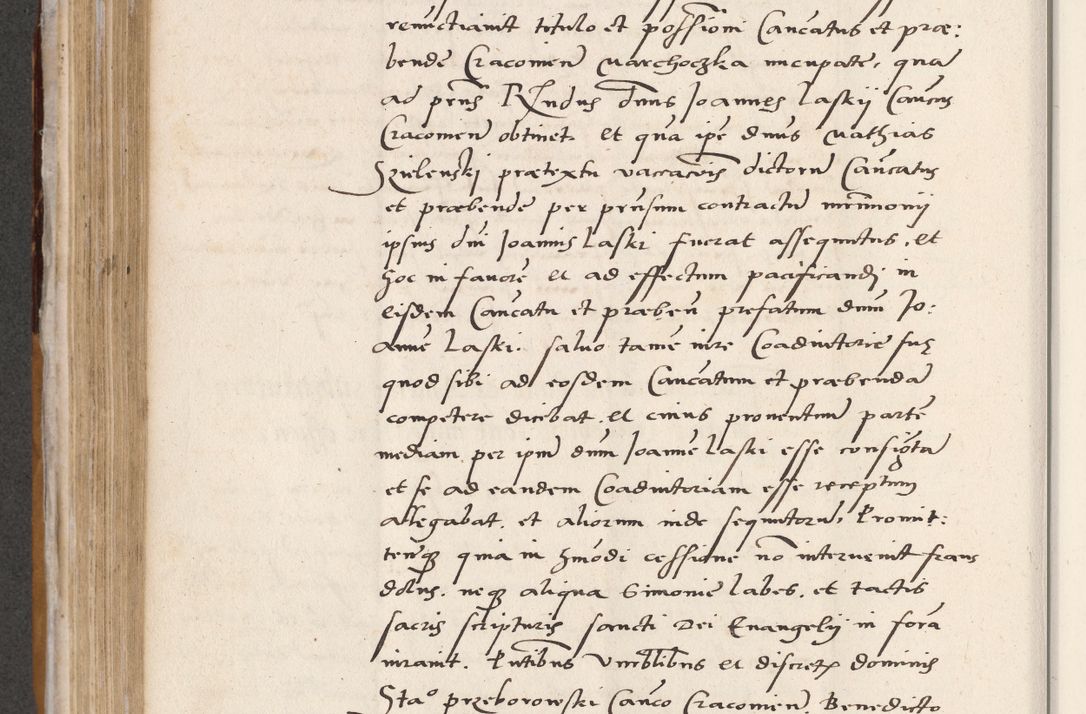 renunctiavit titulo et possioni Cancatus et præ:
bende Cracovien Marchoczka nuncupate, qua
ad prns Rndus dnus Joannes Laskij Cancus
Cracovien obtinet et qua ipe dnus Mathias
Szielenski prætextu vaccacois dictoru Cancatus
et præbende per præsum contractu mrimonij
ipsius dni Joannis Laski fuerat assequutus, et
hoc in favore et ad effectum pacificandi in
eisdem Cancatu et præben prefatum dnum Jo:
anne Laski. salvo tame iure Coadiutorie suę
quod sibi ad eosdem Cancatum et præbenda
competere dicebat, et cuius proventum parte
mediam per ipm dnum Joanne Laski esse consigta
et se ad eandem Coadiutoriam esse receptum
allegabat, et aliorum inde sequutoru, Promit:
tensq quia in hmodi cessione no intervenit fraus
dolus, neq aliqua Simonie labes, et tactis
sacris scripturis sancti Dei Evangelij in fora
iuravit. Pntibus Vnrblibus et discretx dominis
Stao przeborowski Canco Cracovien, Benedicto